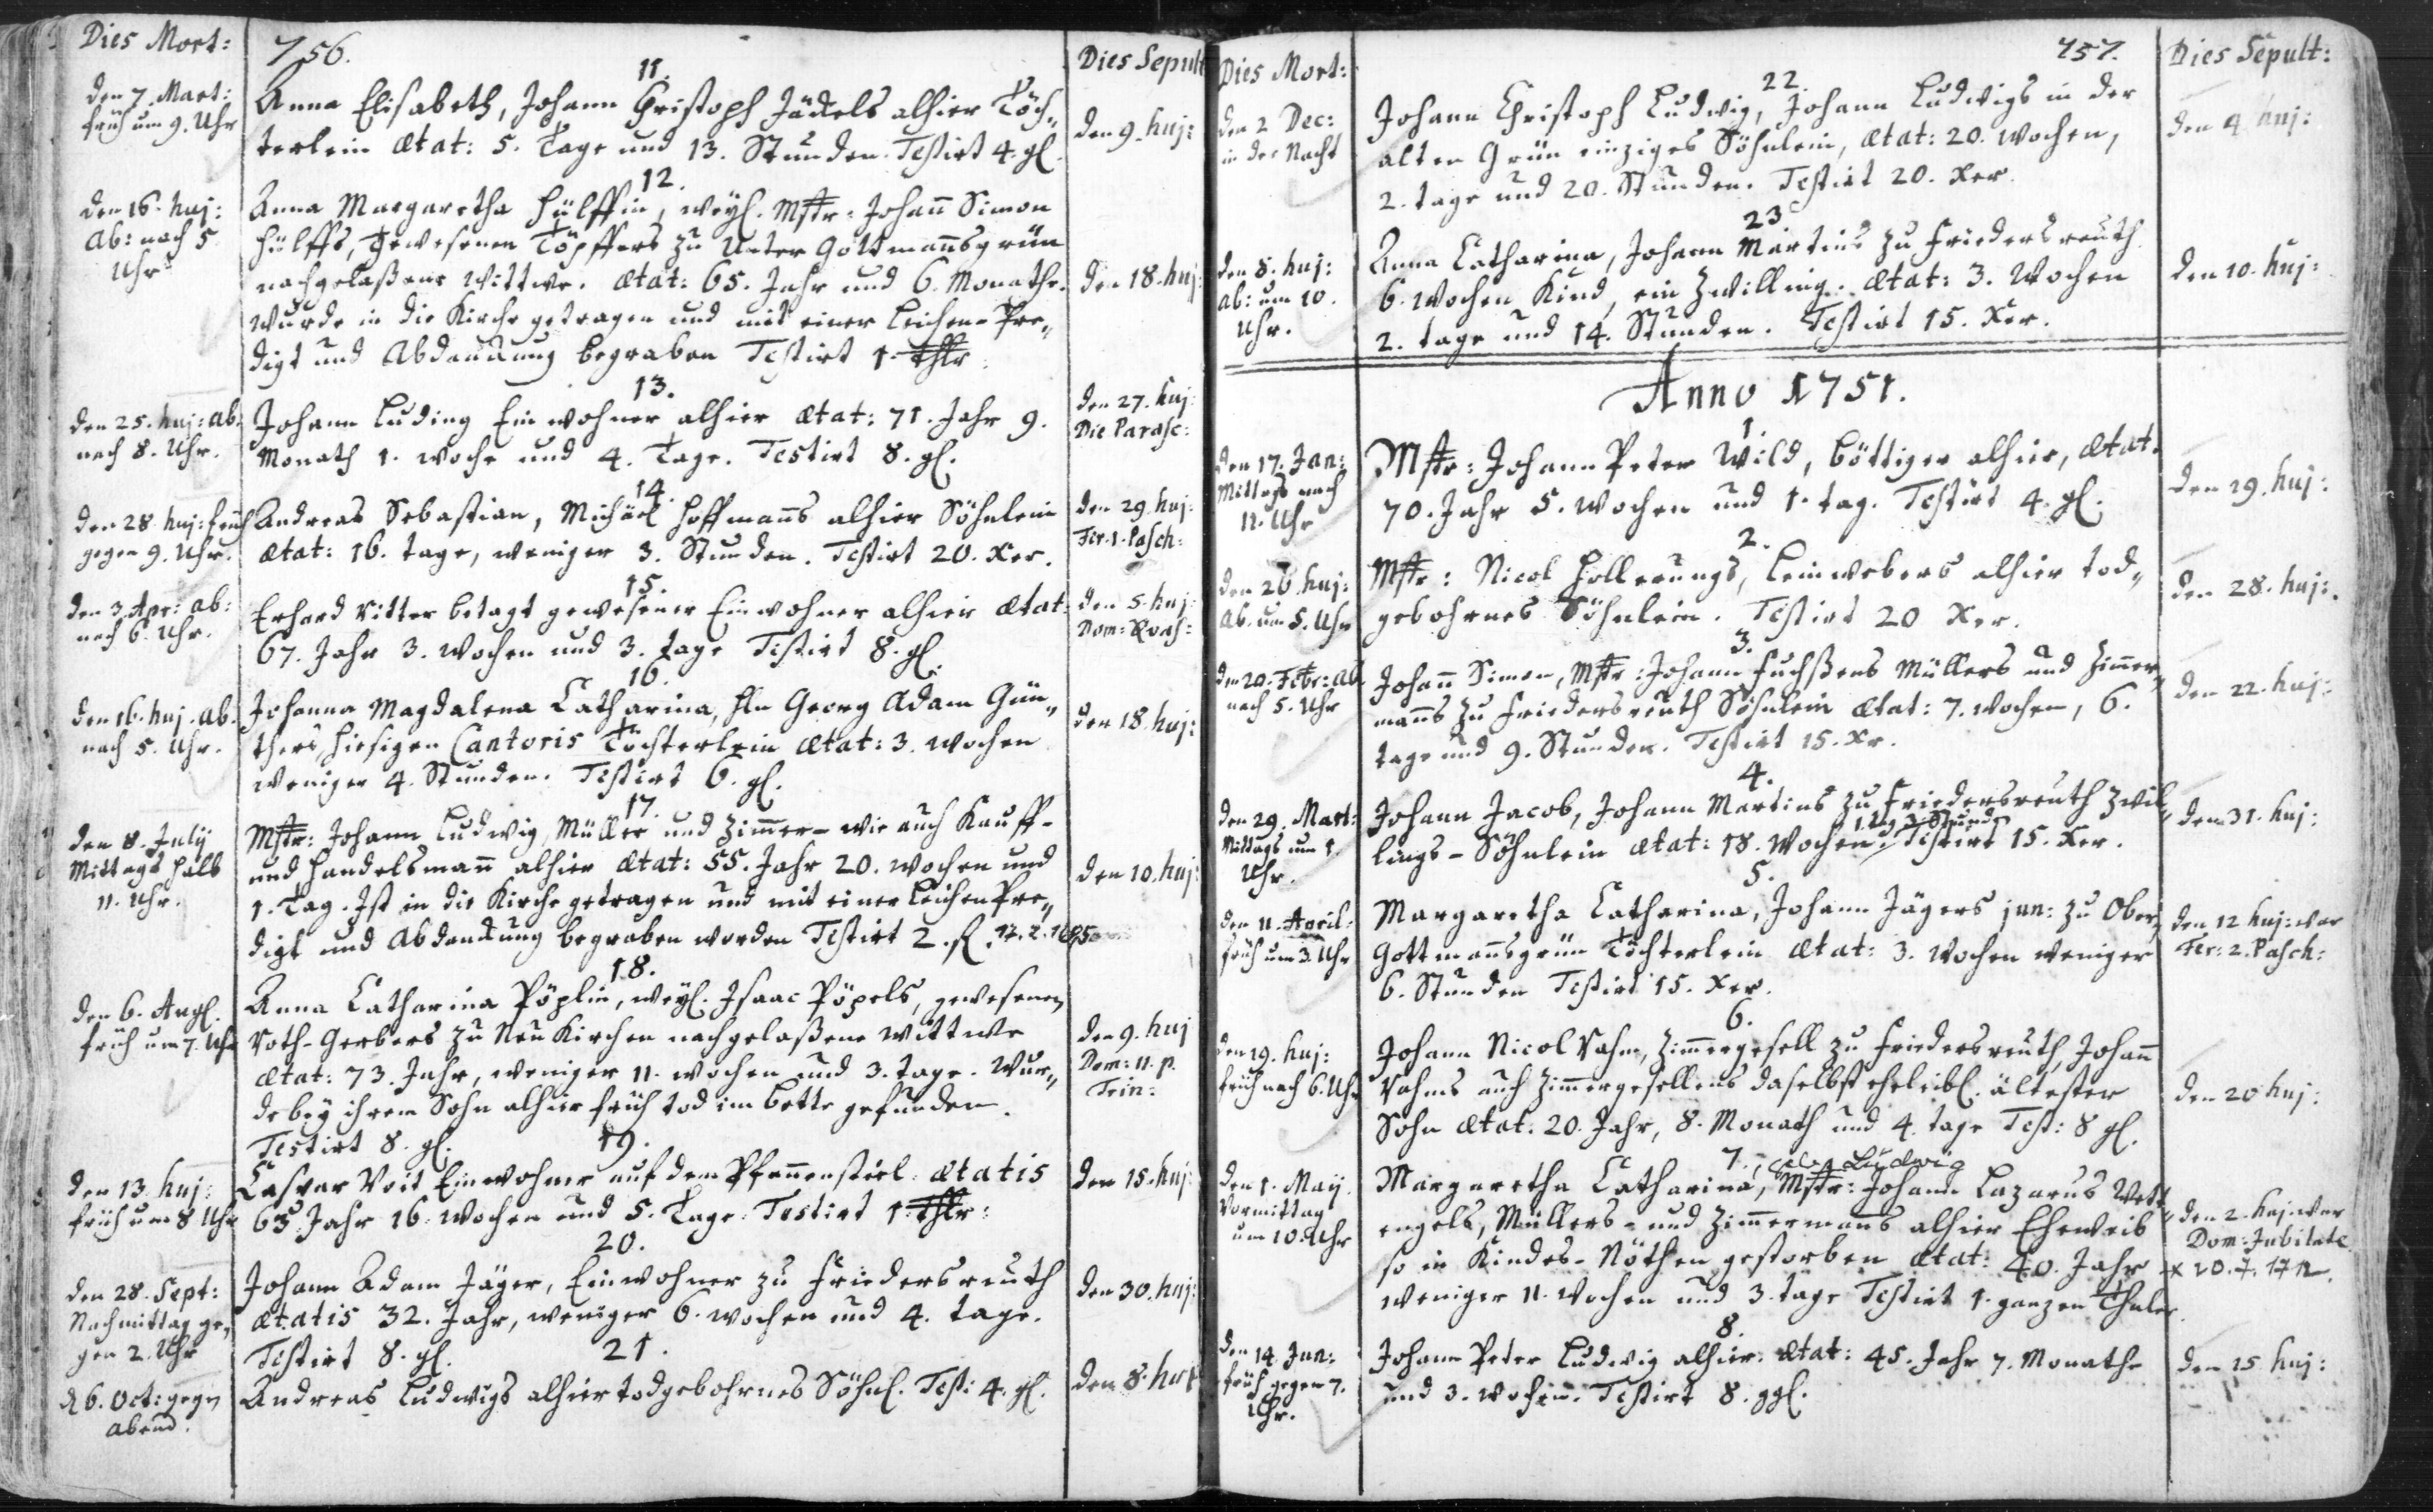 Dies Mort:
756.
Dies Sepult
11.
den 7. Mart:
früh um 9. Uhr
Anna Elisabeth, Johann Christoph Jädels alhier Töch„
terlein ætat: 5. Tage und 13. Stunden. Testirt 4. gl.
den 9. huj:
12.
den 16. huj:
ab: nach 5
Uhr
Anna Margaretha Hülffin, weyl. Mstr: Johann Simon
Hülffs, gewesenen Töpffers zu Unter Gottmannsgrün
nachgelaßene Wittwe. ætat: 65. Jahr und 6. Monathe.
wurde in die Kirche getragen und mit einer Leichen-Pre„
digt und Abdanckung begraben Testirt 1. thlr.
den 18. huj:
13.
den 25. huj: ab.
nach 8. Uhr.
Johann Luding Einwohner alhier ætat: 71. Jahr 9.
Monath 1. woche und 4. Tage. Testirt 8. gl.
den 27. huj:
Die Parasc:
14.
den 28. huj: früh
gegen 9. Uhr.
Andreas Sebastian, Michäel Hoffmanns alhier Söhnlein
ætat: 16. tage, weniger 3. Stunden. Testirt 20. Xer.
den 29. huj:
Fer. 1. Pasch:
15.
den 3. Apr: ab:
nach 6. Uhr.
Erhard Ritter betagt gewesener Einwohner alhier ætat:
67. Jahr 3. wochen und 3. tage Testirt 8. gl.
den 5. huj:
Dom: Quas:
16.
den 16. huj. ab.
nach 5. Uhr.
Johanna Magdalena Catharina, Hln Georg Adam Gün„
thers, hiesigen Cantoris Töchterlein ætat: 3. wochen
weniger 4. Stunden. Testirt 6. gl.
den 18. huj:
17.
den 8. July
Mittags halb
11. Uhr.
Mstr: Johann Ludwig, Müller und Zimmer- wie auch Kauff-
und Handelsmann alhier ætat: 55. Jahr 20. wochen und
1. Tag. Ist in die Kirche getragen und mit einer LeichenPre„
digt und Abdanckung begraben worden Testirt 2. fl. 17. 2. 1695
den 10. huj:
18.
den 6. Augl.
früh um 7. Uhr
Anna Catharina Pöplin, weyl. Isaac Pöpels, gewesenen
Roth-Gerbers zu Neu Kirchen nachgelaßene Wittwe
ætat: 73. Jahr, weniger 11. wochen und 3. tage. Wur„
de bey ihrem Sohn alhier früh tod im Bette gefunden.
Testirt 8. gl.
den 9. huj
Dom: 11. p.
Trin:
19.
den 13. huj:
früh um 8 Uhr
Casper Voit Einwohner auf dem Pfannenstiel ætatis
65 Jahr 16. wochen und 5. Tage. Testirt 1. thlr:
den 15. huj:
20.
den 28. Sept:
Nachmittag ge„
gen 2. Uhr
Johann Adam Jäger, Einwohner zu Friedersreuth
ætatis 32. Jahr, weniger 6. wochen und 4. tage.
Testirt 8. gl.
den 30. huj:
21.
d. 6. Oct: gegen
abend.
Andreas Ludwigs alhier todgebohrnes Söhnl. Test: 4. gl.
den 8. huj
Dies Mort:
757.
Dies Sepult:
22.
den 2 Dec:
in der Nacht
Johann Christoph Ludwig, Johann Ludwigs in der
alten Grün einziges Söhnlein, ætat: 20. wochen,
2. tage und 20. Stunden. Testirt 20. Xer.
den 4 huj:
23
den 8. huj:
ab: um 10.
Uhr.
Anna Catharina, Johann Martins zu Friedersreuth
6. Wochen Kind, ein Zwilling. ætat: 3. Wochen
2. tage und 14. Stunden. Testirt 15. Xer.
den 10. huj:
Anno 1751.
1.
den 17. Jan:
Mittags nach
11. Uhr
Mstr: Johann Peter Wild, böttiger alhier, ætat.
70. Jahr 5. wochen und 1. tag. Testirt 4. gl.
den 19. huj:
2.
den 26. huj:
ab. um 5. Uhr
Mstr: Nicol Hollerungs, Leinwebers alhier tod„
gebohrnes Söhnlein. Testirt 20 Xer.
den 28. huj:
3.
den 20. Febr: ab.
nach 5. Uhr
Johann Simon, Mstr: Johann Fuchßens Müllers und Zimer„
manns zu Friedersreuth Söhnlein ætat: 7. wochen, 6.
tage und 9. Stunden. Testirt 15. Xr.
den 22. huj:
4.
den 29. Mart:
Mittags um 1.
Uhr.
Johann Jacob, Johann Martins zu Friedersreuth Zwil„
1. tag 3. Stund
lings-Söhnlein ætat: 18. Wochen. Testirt 15. Xer.
den 31. huj:
5.
den 11. April:
früh um 3. Uhr
Margaretha Catharina, Johann Jägers jun: zu Ober„
Gottmannsgrün Töchterlein ætat: 3. Wochen weniger
6. Stunden Testirt 15. Xer.
den 12 huj: war
Fer: 2. Pasch:
6.
den 19. huj:
früh nach 6. Uhr
Johann Nicol Rahm, Zimmergesell zu Friedersreuth, Johann
Rahms auch Zimmergesellens daselbst eheleibl. ältester
Sohn ætat. 20. Jahr, 8. Monath und 4. tage Test: 8 gl.
den 20 huj:
7.
geb. Ludwig
den 1. Maij
Vormittag
um 10. Uhr
Margaretha Catharina, Mstr: Johann Lazarus Wett„
engels, Müllers- und Zimmermanns alhier Eheweib
so in Kindes-Nöthen gestorben ætat: 40. Jahr
weniger 11. Wochen und 3. tage Testirt 1. ganzen Thaler.
den 2. huj: war
Dom: Jubilate
* 20. 7. 1711.
8.
den 14. Jun:
früh gegen 7.
Uhr.
Johann Peter Ludwig alhier: ætat: 45. Jahr 7. Monathe
und 3. wochen. Testirt 8. ggl.
den 15 huj: